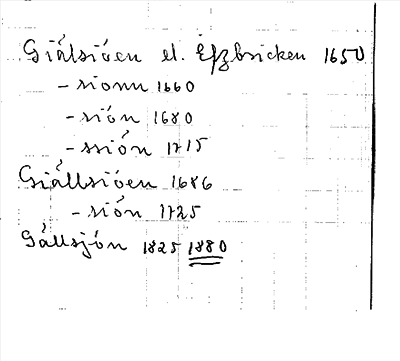 Giålsiöen el. Efzbricken 1650
- sionn 1660
- siön 1680
- ssiön 1715
Giållsiöen 1686
- siön 1725
Gållsjön 1825 1880